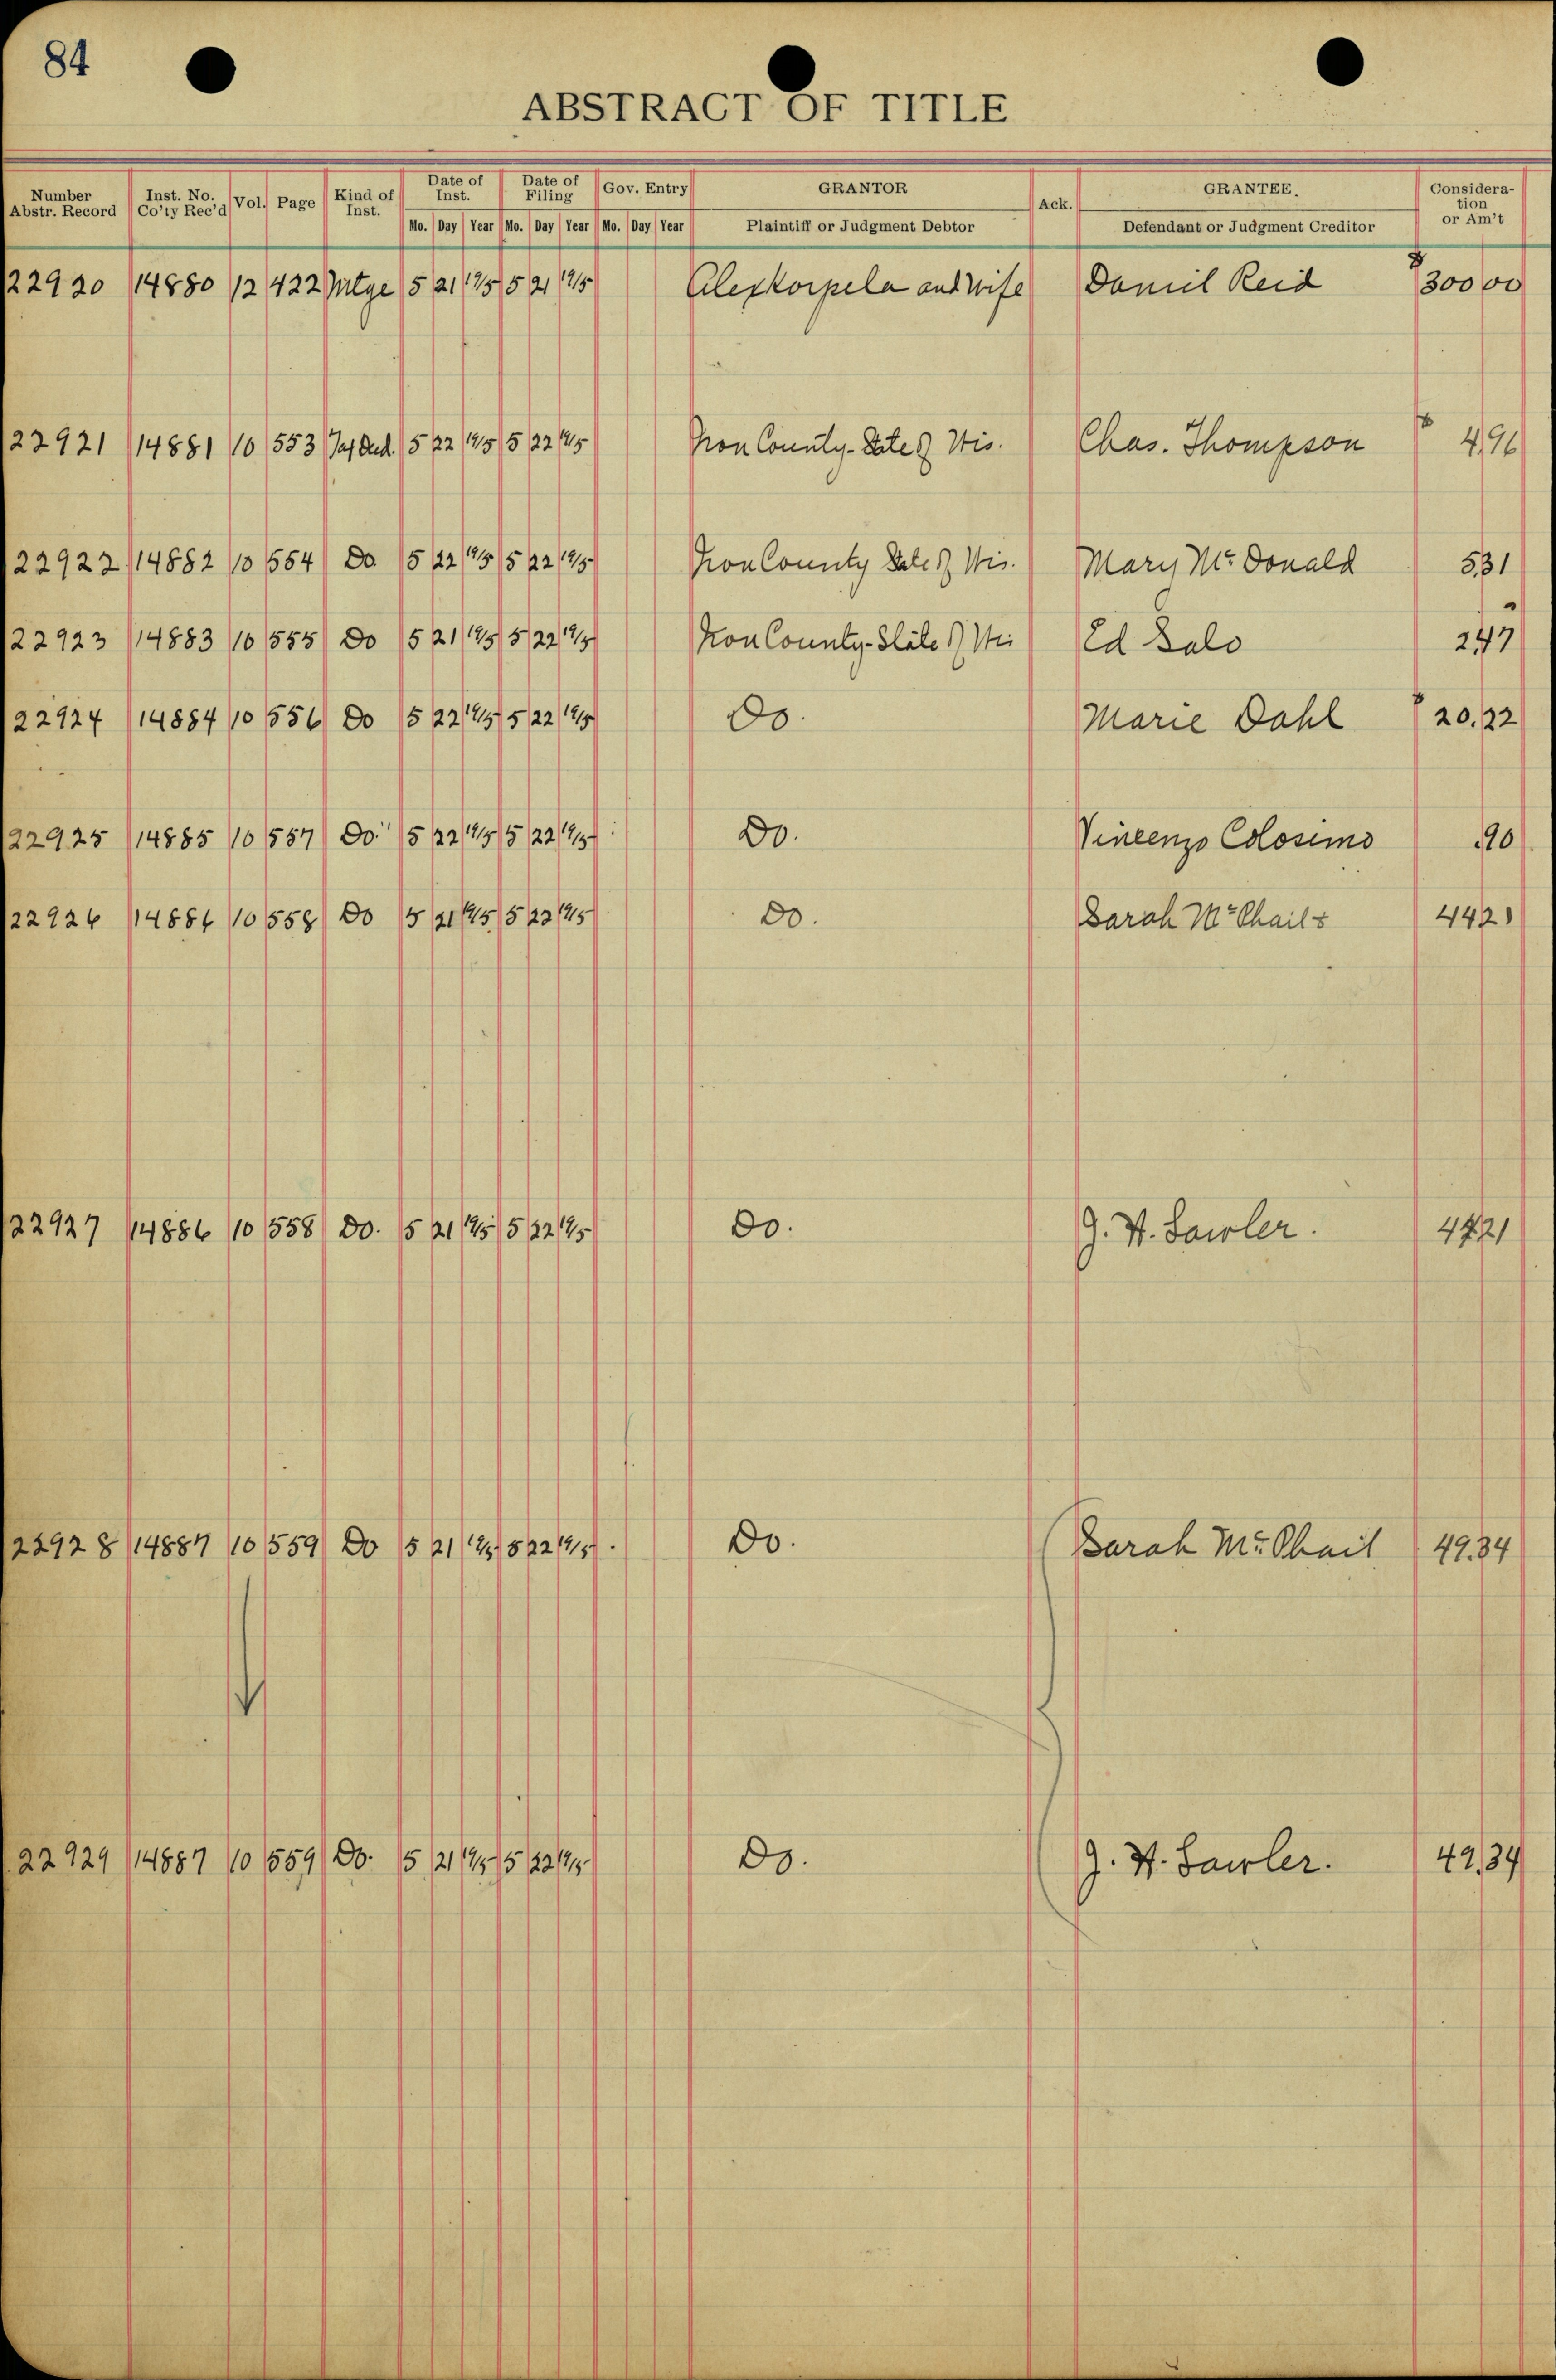 84
ABSTRACT OF TITLE
Number Abstr. Record | Inst. No. Co'ty Rec'd | Vol. | Page | Kind of Inst. | Date of Inst. | Date of Filing | Gov. Entry | GRANTOR | Ack. | GRANTEE. | Considera-tion or Am't
Mo. | Day | Year | Mo. | Day | Year | Mo. | Day | Year | Plaintiff or Judgment Debtor | Defendant or Judgment Creditor
22920 14880 12 422 Mtge 5 21 1915 5 21 1915 Alex Korpela and Wife Daniel Reid $300 00
22921 14881 10 553 Tax Ded. 5 22 1915 5 22 1915 Iron County - State of Wis. Chas. Thompson $ 4.96
22922 14882 10 554 Do 5 22 1915 5 22 1915 Iron County State of Wis. Mary McDonald 5.31
22923 14883 10 555 Do 5 21 1915 5 22 1915 Iron County - State of Wis Ed Salo 2.47
22924 14884 10 556 Do 5 22 1915 5 22 1915 Do. Marie Dahl $ 20.22
22925 14885 10 557 Do. 5 22 1915 5 22 1915 Do. Vincenzo Colosimo .90
22926 14886 10 558 Do 5 21 1915 5 22 1915 Do. Sarah McPhail 4421
22927 14886 10 558 Do. 5 21 1915 5 22 1915 Do. J. H. Sawler. 4421
22928 14887 10 559 Do 5 21 1915 5 22 1915 Do. Sarah McPhail 49.34
22929 14887 10 559 Do. 5 21 1915 5 22 1915 Do. J. H. Sawler. 49.34